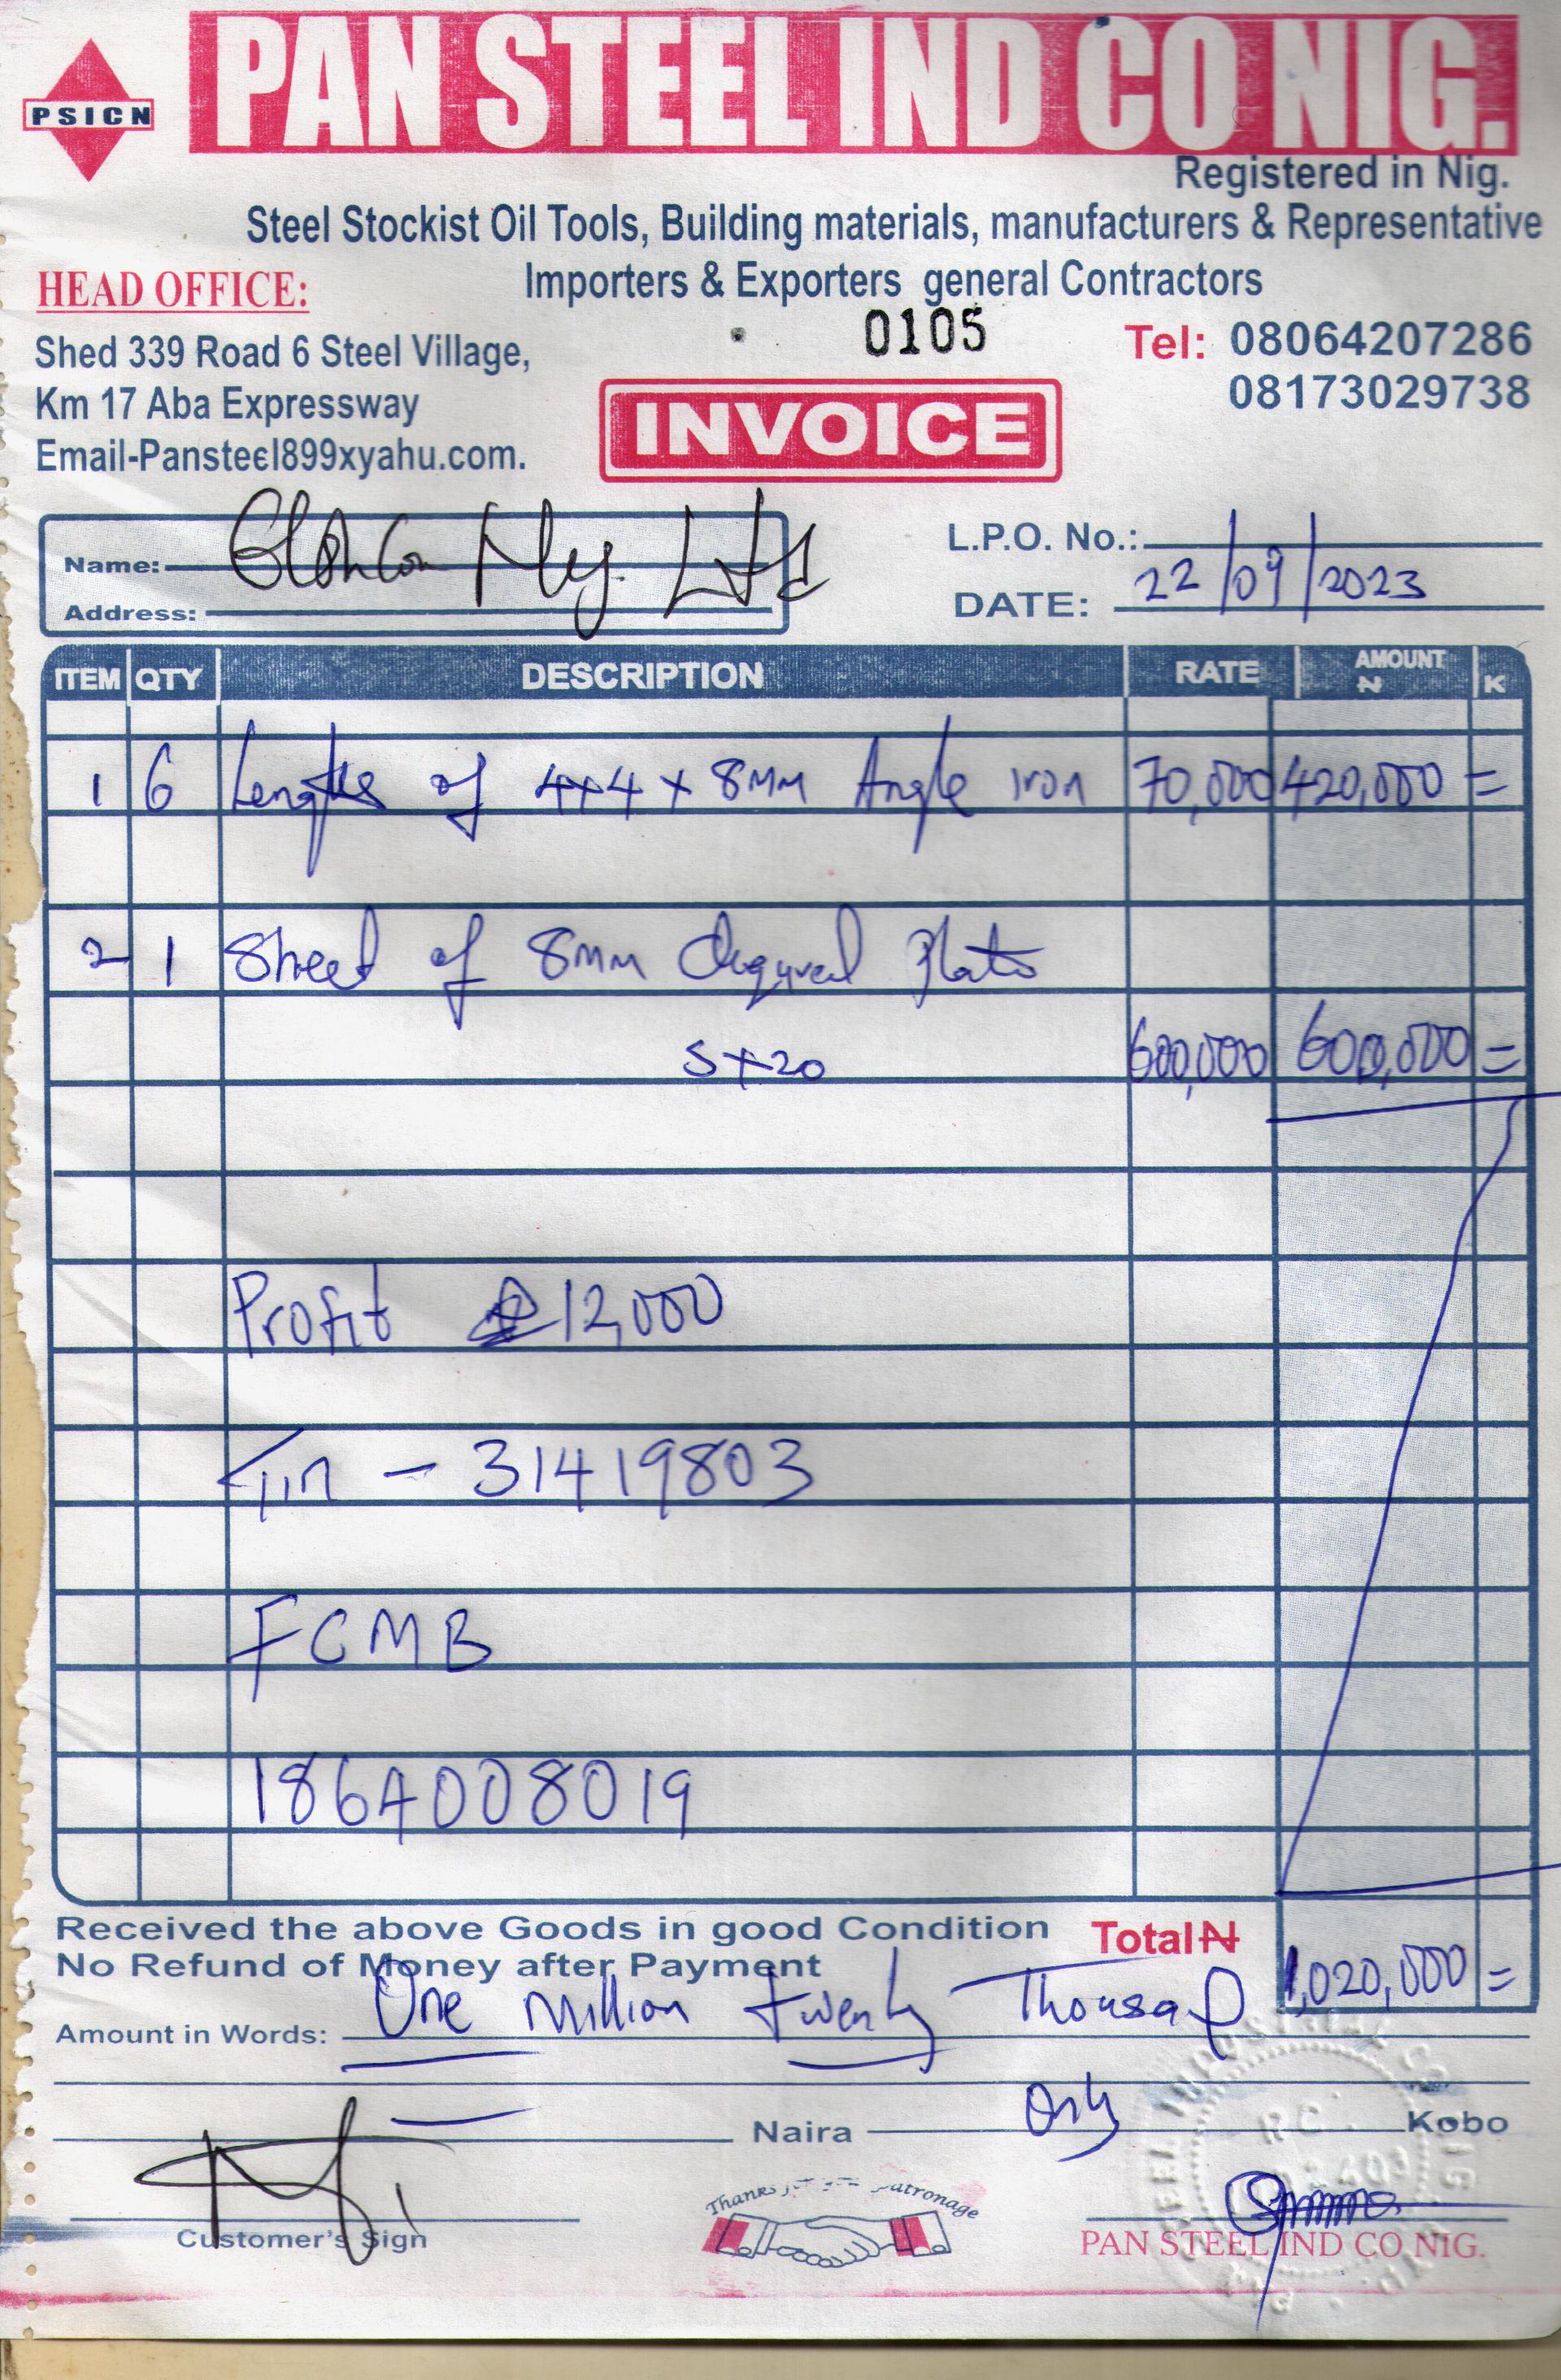 PSICN
PAN STEEL IND CO NIG.
Registered in Nig.
Steel Stockist Oil Tools, Building materials, manufacturers & Representative
Importers & Exporters general Contractors
HEAD OFFICE:
Shed 339 Road 6 Steel Village,
Km 17 Aba Expressway
Email-Pansteel899xyahu.com.
0105
Tel: 08064207286
08173029738
INVOICE
Name: Nig. Ltd
Address:
L.P.O. No.:
DATE: 22/09/2023
ITEM QTY DESCRIPTION RATE AMOUNT N K
1 6 Lengths of 4x4 x 8mm Angle iron 70,000 420,000 =
2 1 Sheet of 8mm Plate
5x20 600,000 600,000 =
Profit 12,000
Tin - 31419803
FCMB
1864008019
Received the above Goods in good Condition
No Refund of Money after Payment
Total ₦ 1,020,000 =
Amount in Words: One million twenty Thousand
Naira Only Kobo
Customer's Sign
Thanks Patronage
PAN STEEL IND CO NIG.